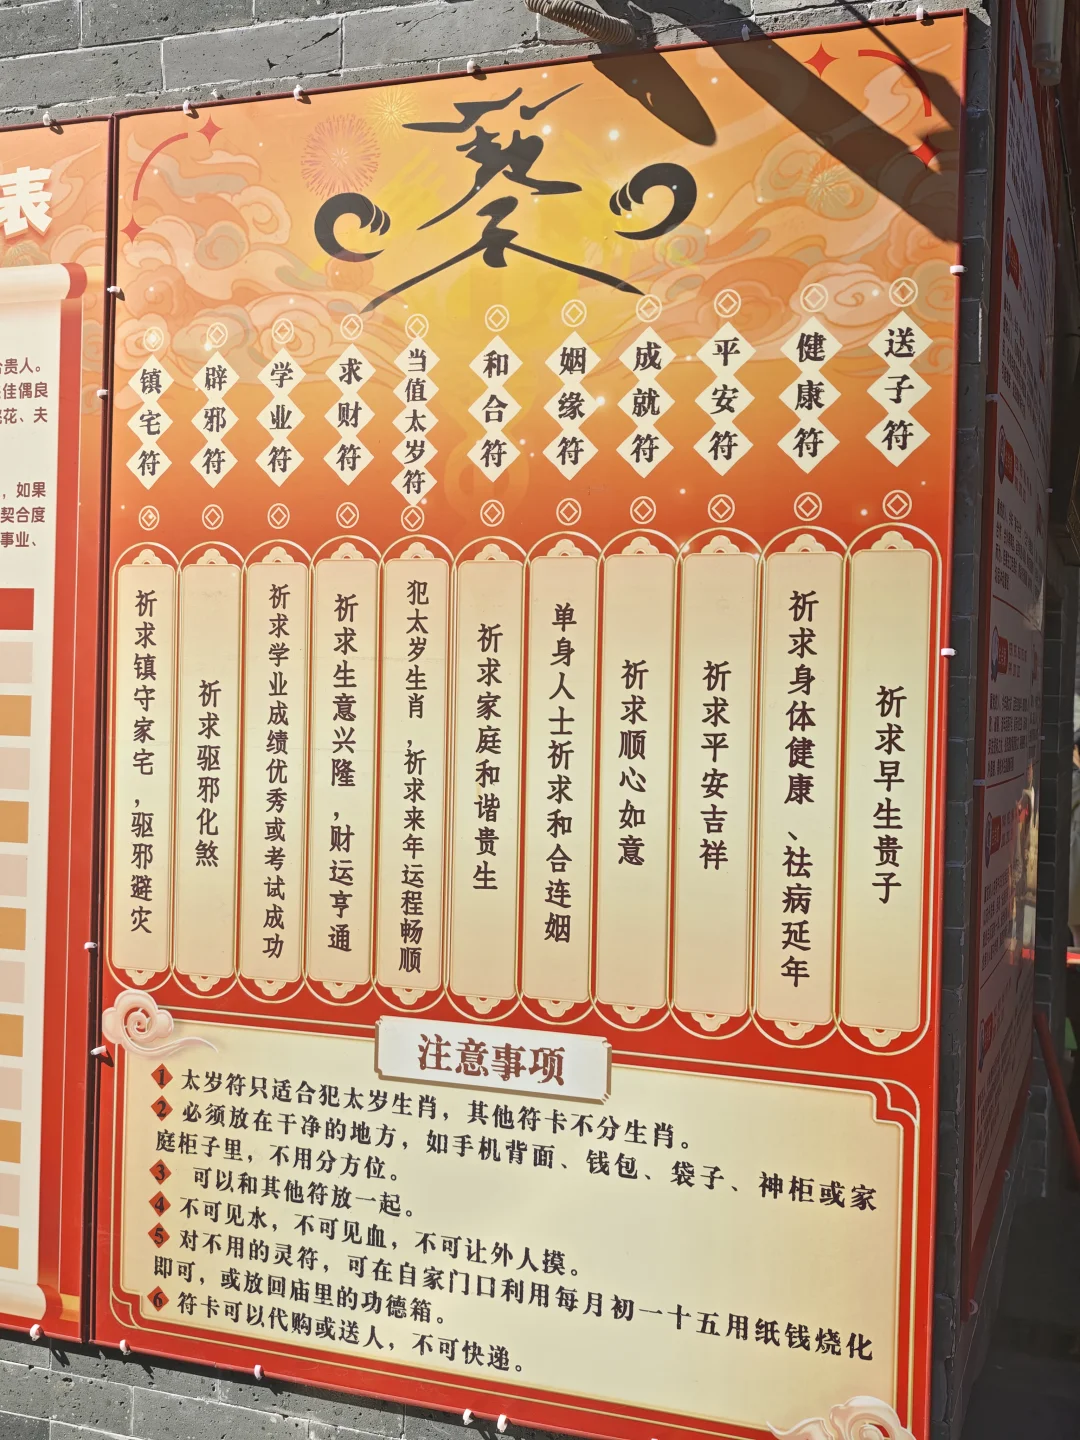 表
贵人。
佳偶良
花、夫
，如果
契合度
事业、
镇宅符
辟邪符
学业符
求财符
当值太岁符
和合符
姻缘符
成就符
平安符
健康符
送子符
祈求镇守家宅，驱邪避灾
祈求驱邪化煞
祈求学业成绩优秀或考试成功
祈求生意兴隆，财运亨通
犯太岁生肖，祈求来年运程畅顺
祈求家庭和谐贵生
单身人士祈求和合连姻
祈求顺心如意
祈求平安吉祥
祈求身体健康、祛病延年
祈求早生贵子
注意事项
1 太岁符只适合犯太岁生肖，其他符卡不分生肖。
2 必须放在干净的地方，如手机背面、钱包、袋子、神柜或家
庭柜子里，不用分方位。
3 可以和其他符放一起。
4 不可见水，不可见血，不可让外人摸。
5 对不用的灵符，可在自家门口利用每月初一十五用纸钱烧化
即可，或放回庙里的功德箱。
6 符卡可以代购或送人，不可快递。